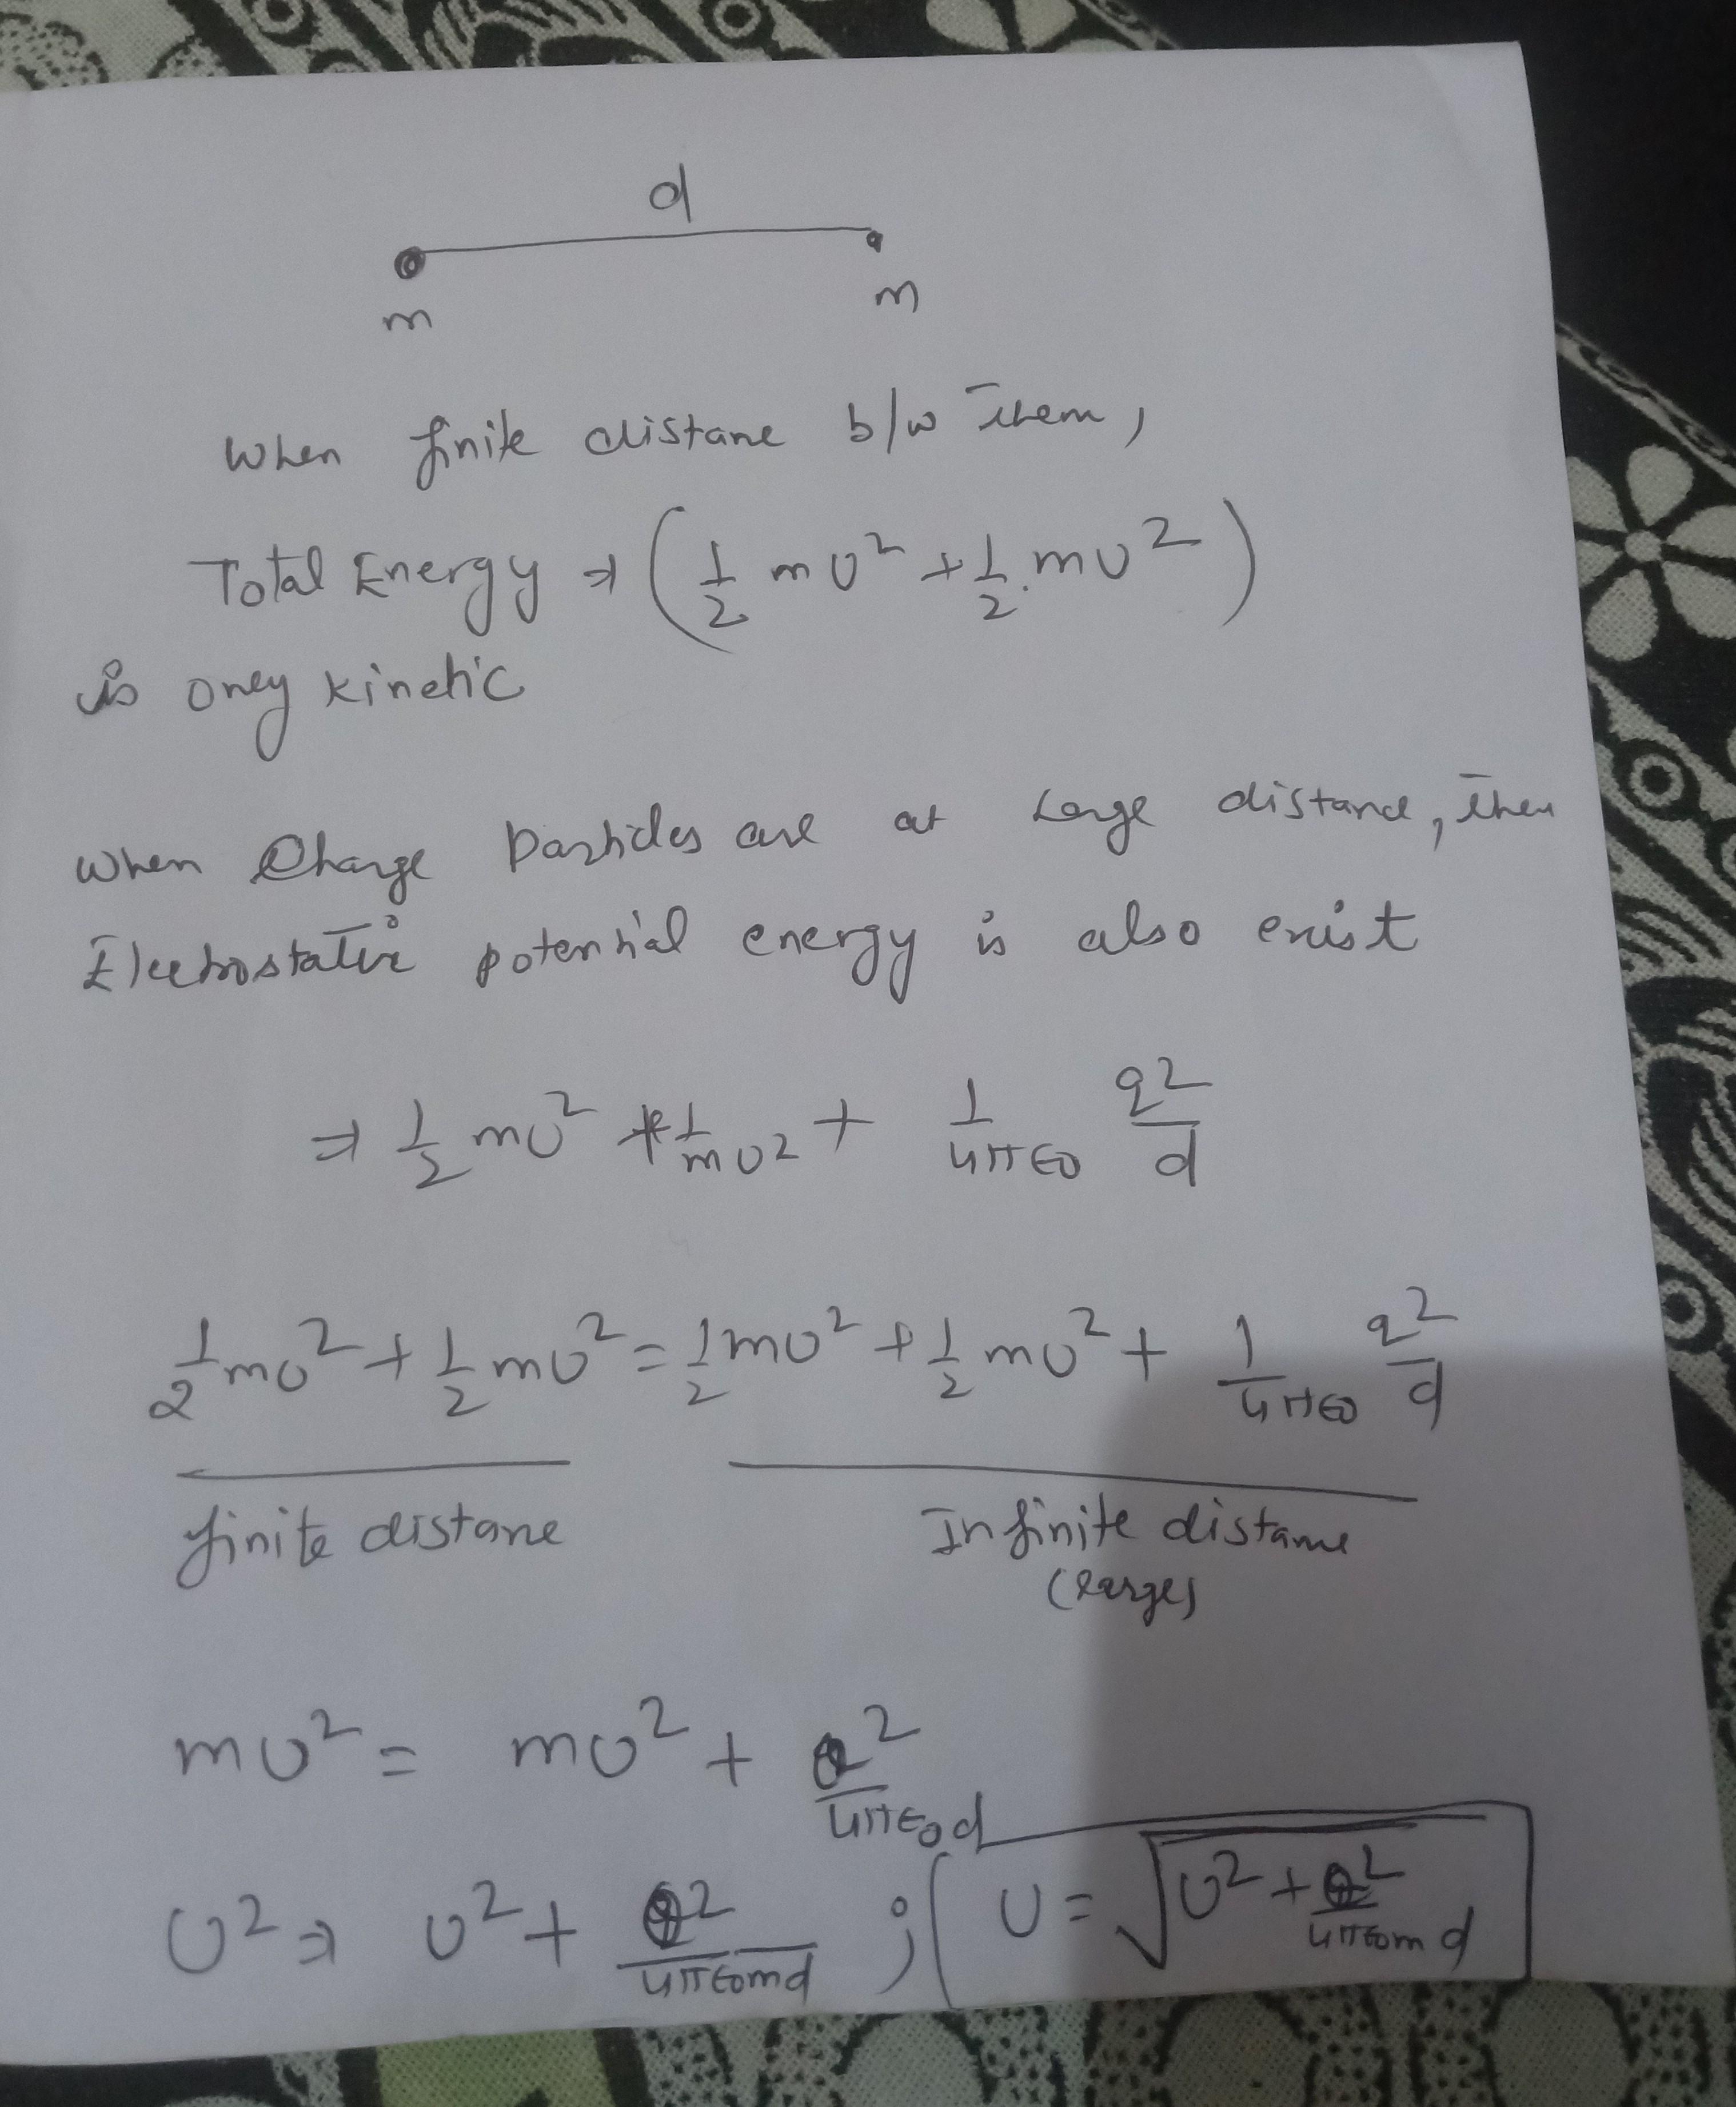 d
m m
When finite distane b/w them,
Total Energy ⇒ (1/2 mv² + 1/2 . mv²)
is oney kinetic
When Charge Particles are at Large distance, then
Electrostatic potential energy is also exist
⇒ 1/2 mv² + 1/m v² + 1/4πε0 q²/d
1/2 mv² + 1/2 mv² = 1/2 mv² + 1/2 mv² + 1/4πε0 q²/d
finite distane Infinite distane
(large)
mv² = mv² + Q²/4πε0d
v² ⇒ v² + Q²/4πε0md ; v = √v² + Q²/4πε0md